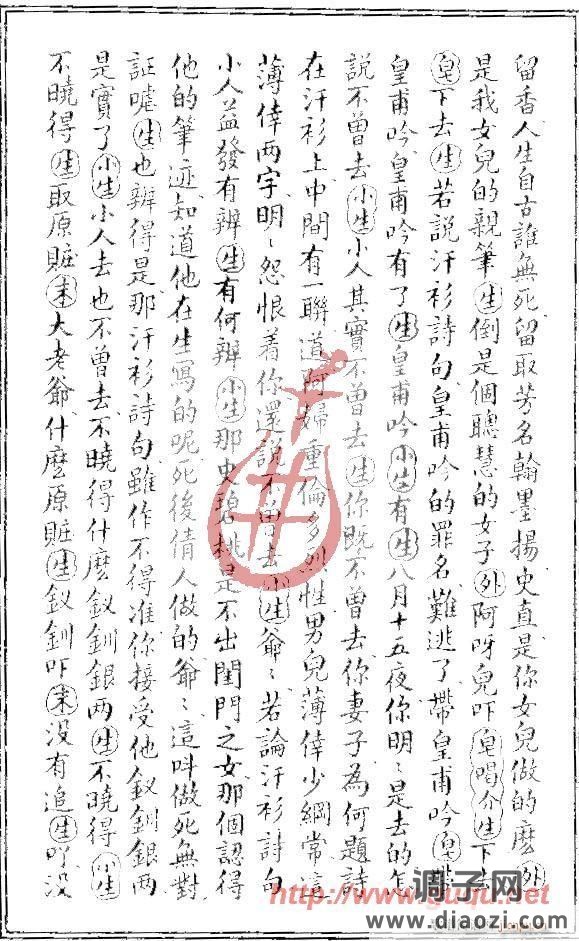 留香人生自古誰無死留取芳名翰墨揚史直是你女兒做的麽外
是我女兒的親筆生倒是個聰慧的女子外阿呀兒吓皂唱介生下去
皂下去生若說汗衫詩句皇甫吟的罪名難逃了帶皇甫吟皂
皇甫吟皇甫吟有了生皇甫吟小生有生八月十五夜你明〻是去的怎
說不曾去小生小人其實不曾去生你既不曾去你妻子為何題詩
在汗衫上中間有一聯道阿婦重倫多烈性男兒薄倖少綱常這
薄倖兩字明〻怨恨着你還說不曾去小生爺〻若論汗衫詩句
小人益發有辨生有何辨小生那史碧桃是不出閨門之女那個認得
他的筆迹知道他在生寫的呢死後倩人做的爺〻這叫做死無對
証嘘生也辨得是那汗衫詩句雖作不得准你接受他釵釧銀兩
是實了小生小人去也不曾去不曉得什麽釵釧銀兩生不曉得小生
不曉得生取原賍末大老爺什麽原賍生釵釧吓末没有追生吖没
http://www.guqu.net
调子网
www.diaozi.com